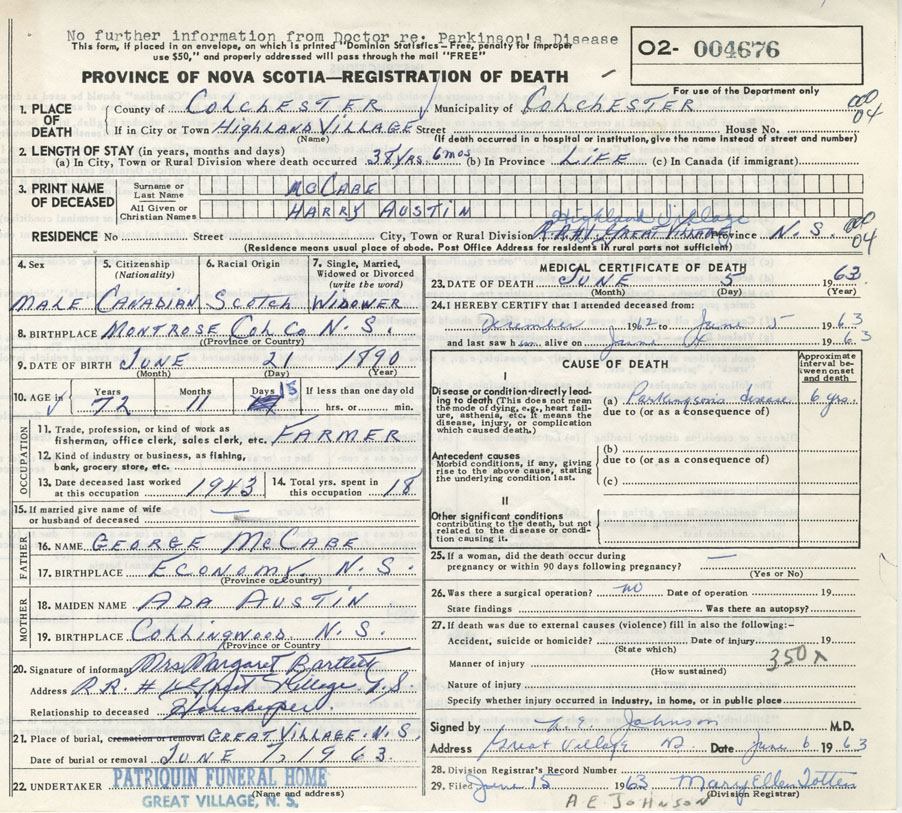 No further information from Doctor re: Parkinson's Disease
This form, if placed in an envelope, on which is printed "Dominion Statistics – Free, penalty for improper
use $50," and properly addressed will pass through the mail "FREE"
O2- 004676
PROVINCE OF NOVA SCOTIA—REGISTRATION OF DEATH
For use of the Department only
1. PLACE OF DEATH
County of COLCHESTER Municipality of COLCHESTER 000 04
If in City or Town HIGHLAND VILLAGE Street House No.
(Name) (If death occurred in a hospital or institution, give the name instead of street and number)
2. LENGTH OF STAY (in years, months and days)
(a) In City, Town or Rural Division where death occurred 38 YRS. 6 mos (b) In Province LIFE (c) In Canada (if immigrant)
3. PRINT NAME OF DECEASED
Surname or Last Name McCABE
All Given or Christian Names HARRY AUSTIN
Highland Village
RESIDENCE No Street City, Town or Rural Division GREAT VILLAGE Province N. S. 000 04
(Residence means usual place of abode. Post Office Address for residents in rural parts not sufficient)
4. Sex 5. Citizenship (Nationality) 6. Racial Origin 7. Single, Married, Widowed or Divorced (write the word)
MALE CANADIAN SCOTCH WIDOWER
8. BIRTHPLACE MONTROSE COL CO N. S.
(Province or Country)
9. DATE OF BIRTH JUNE 21 1890
(Month) (Day) (Year)
10. AGE in Years Months Days If less than one day old
72 11 15 hrs. or min.
OCCUPATION
11. Trade, profession, or kind of work as fisherman, office clerk, sales clerk, etc. FARMER
12. Kind of industry or business, as fishing, bank, grocery store, etc.
13. Date deceased last worked at this occupation 1943 14. Total yrs. spent in this occupation 18
15. If married give name of wife or husband of deceased —
FATHER
16. NAME GEORGE McCABE
17. BIRTHPLACE ECONOMY N. S.
(Province or Country)
MOTHER
18. MAIDEN NAME ADA AUSTIN
19. BIRTHPLACE COLLINGWOOD N. S.
(Province or Country
20. Signature of informant Mrs Margaret Bartlett
Address R.R. # Great Village N.S.
Relationship to deceased Housekeeper
21. Place of burial, cremation or removal GREAT VILLAGE, N. S.
Date of burial or removal JUNE 7, 1963
22. UNDERTAKER PATRIQUIN FUNERAL HOME
(Name and address)
GREAT VILLAGE, N. S.
MEDICAL CERTIFICATE OF DEATH
23. DATE OF DEATH JUNE 5 1963
(Month) (Day) (Year)
24. I HEREBY CERTIFY that I attended deceased from:
December 1962 to June 5 1963
and last saw h alive on June 1963
CAUSE OF DEATH
Approximate interval between onset and death
I
Disease or condition-directly leading to death (This does not mean the mode of dying, e.g., heart failure, asthenia, etc. It means the disease, injury, or complication which caused death.)
(a) Parkinson's disease 6 yrs.
due to (or as a consequence of)
Antecedent causes
Morbid conditions, if any, giving rise to the above cause, stating the underlying condition last.
(b)
due to (or as a consequence of)
(c)
II
Other significant conditions
contributing to the death, but not related to the disease or condition causing it.
25. If a woman, did the death occur during pregnancy or within 90 days following pregnancy? —
(Yes or No)
26. Was there a surgical operation? no Date of operation 19
State findings Was there an autopsy?
27. If death was due to external causes (violence) fill in also the following:-
Accident, suicide or homicide? Date of injury 19
(State which)
350X
Manner of injury
(How sustained)
Nature of injury
Specify whether injury occurred in industry, in home, or in public place
Signed by A. E. Johnson M.D.
Address Great Village Date June 6 1963
28. Division Registrar's Record Number
29. Filed June 15 1963 Mary Ellen Totten
(Division Registrar)
A E JOHNSON